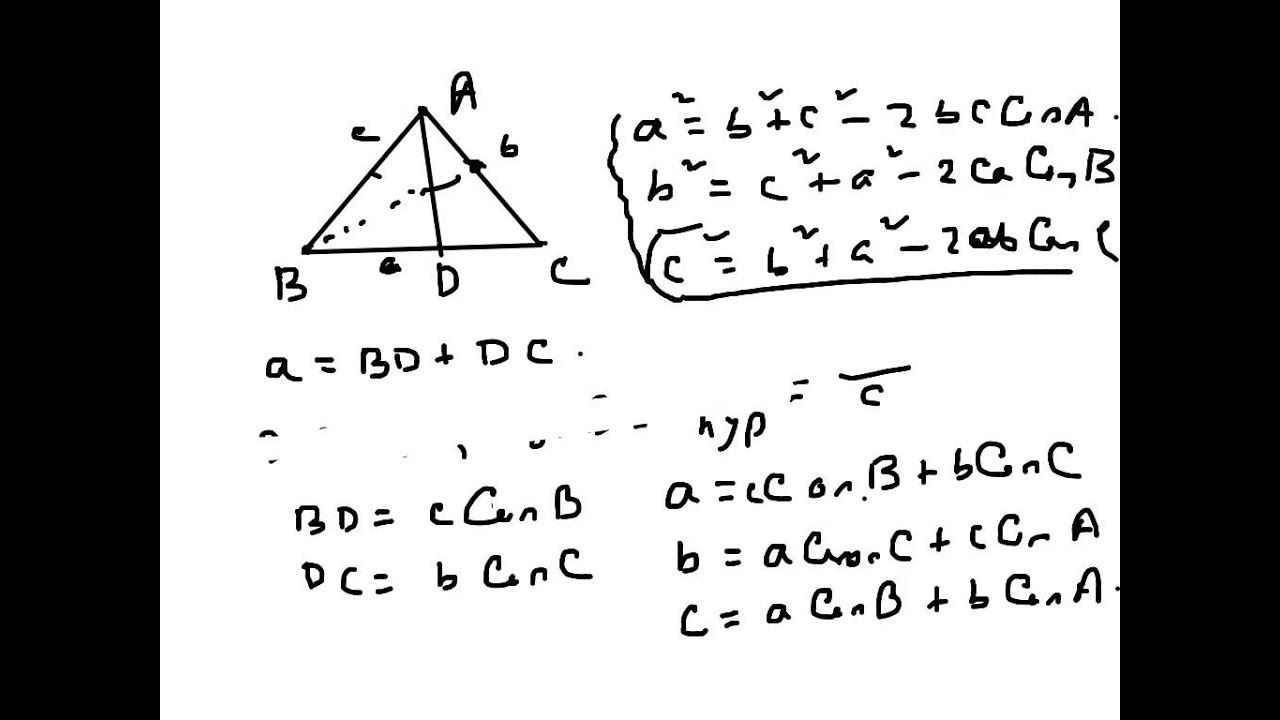 A
c
b
B
a
D
C
a² = b² + c² - 2bc Cos A.
b² = c² + a² - 2ca Cos B
c² = b² + a² - 2ab Cos C
a = BD + DC.
hyp = c
BD = c Cos B
DC = b Cos C
a = c Cos B + b Cos C
b = a Cos C + c Cos A
c = a Cos B + b Cos A.